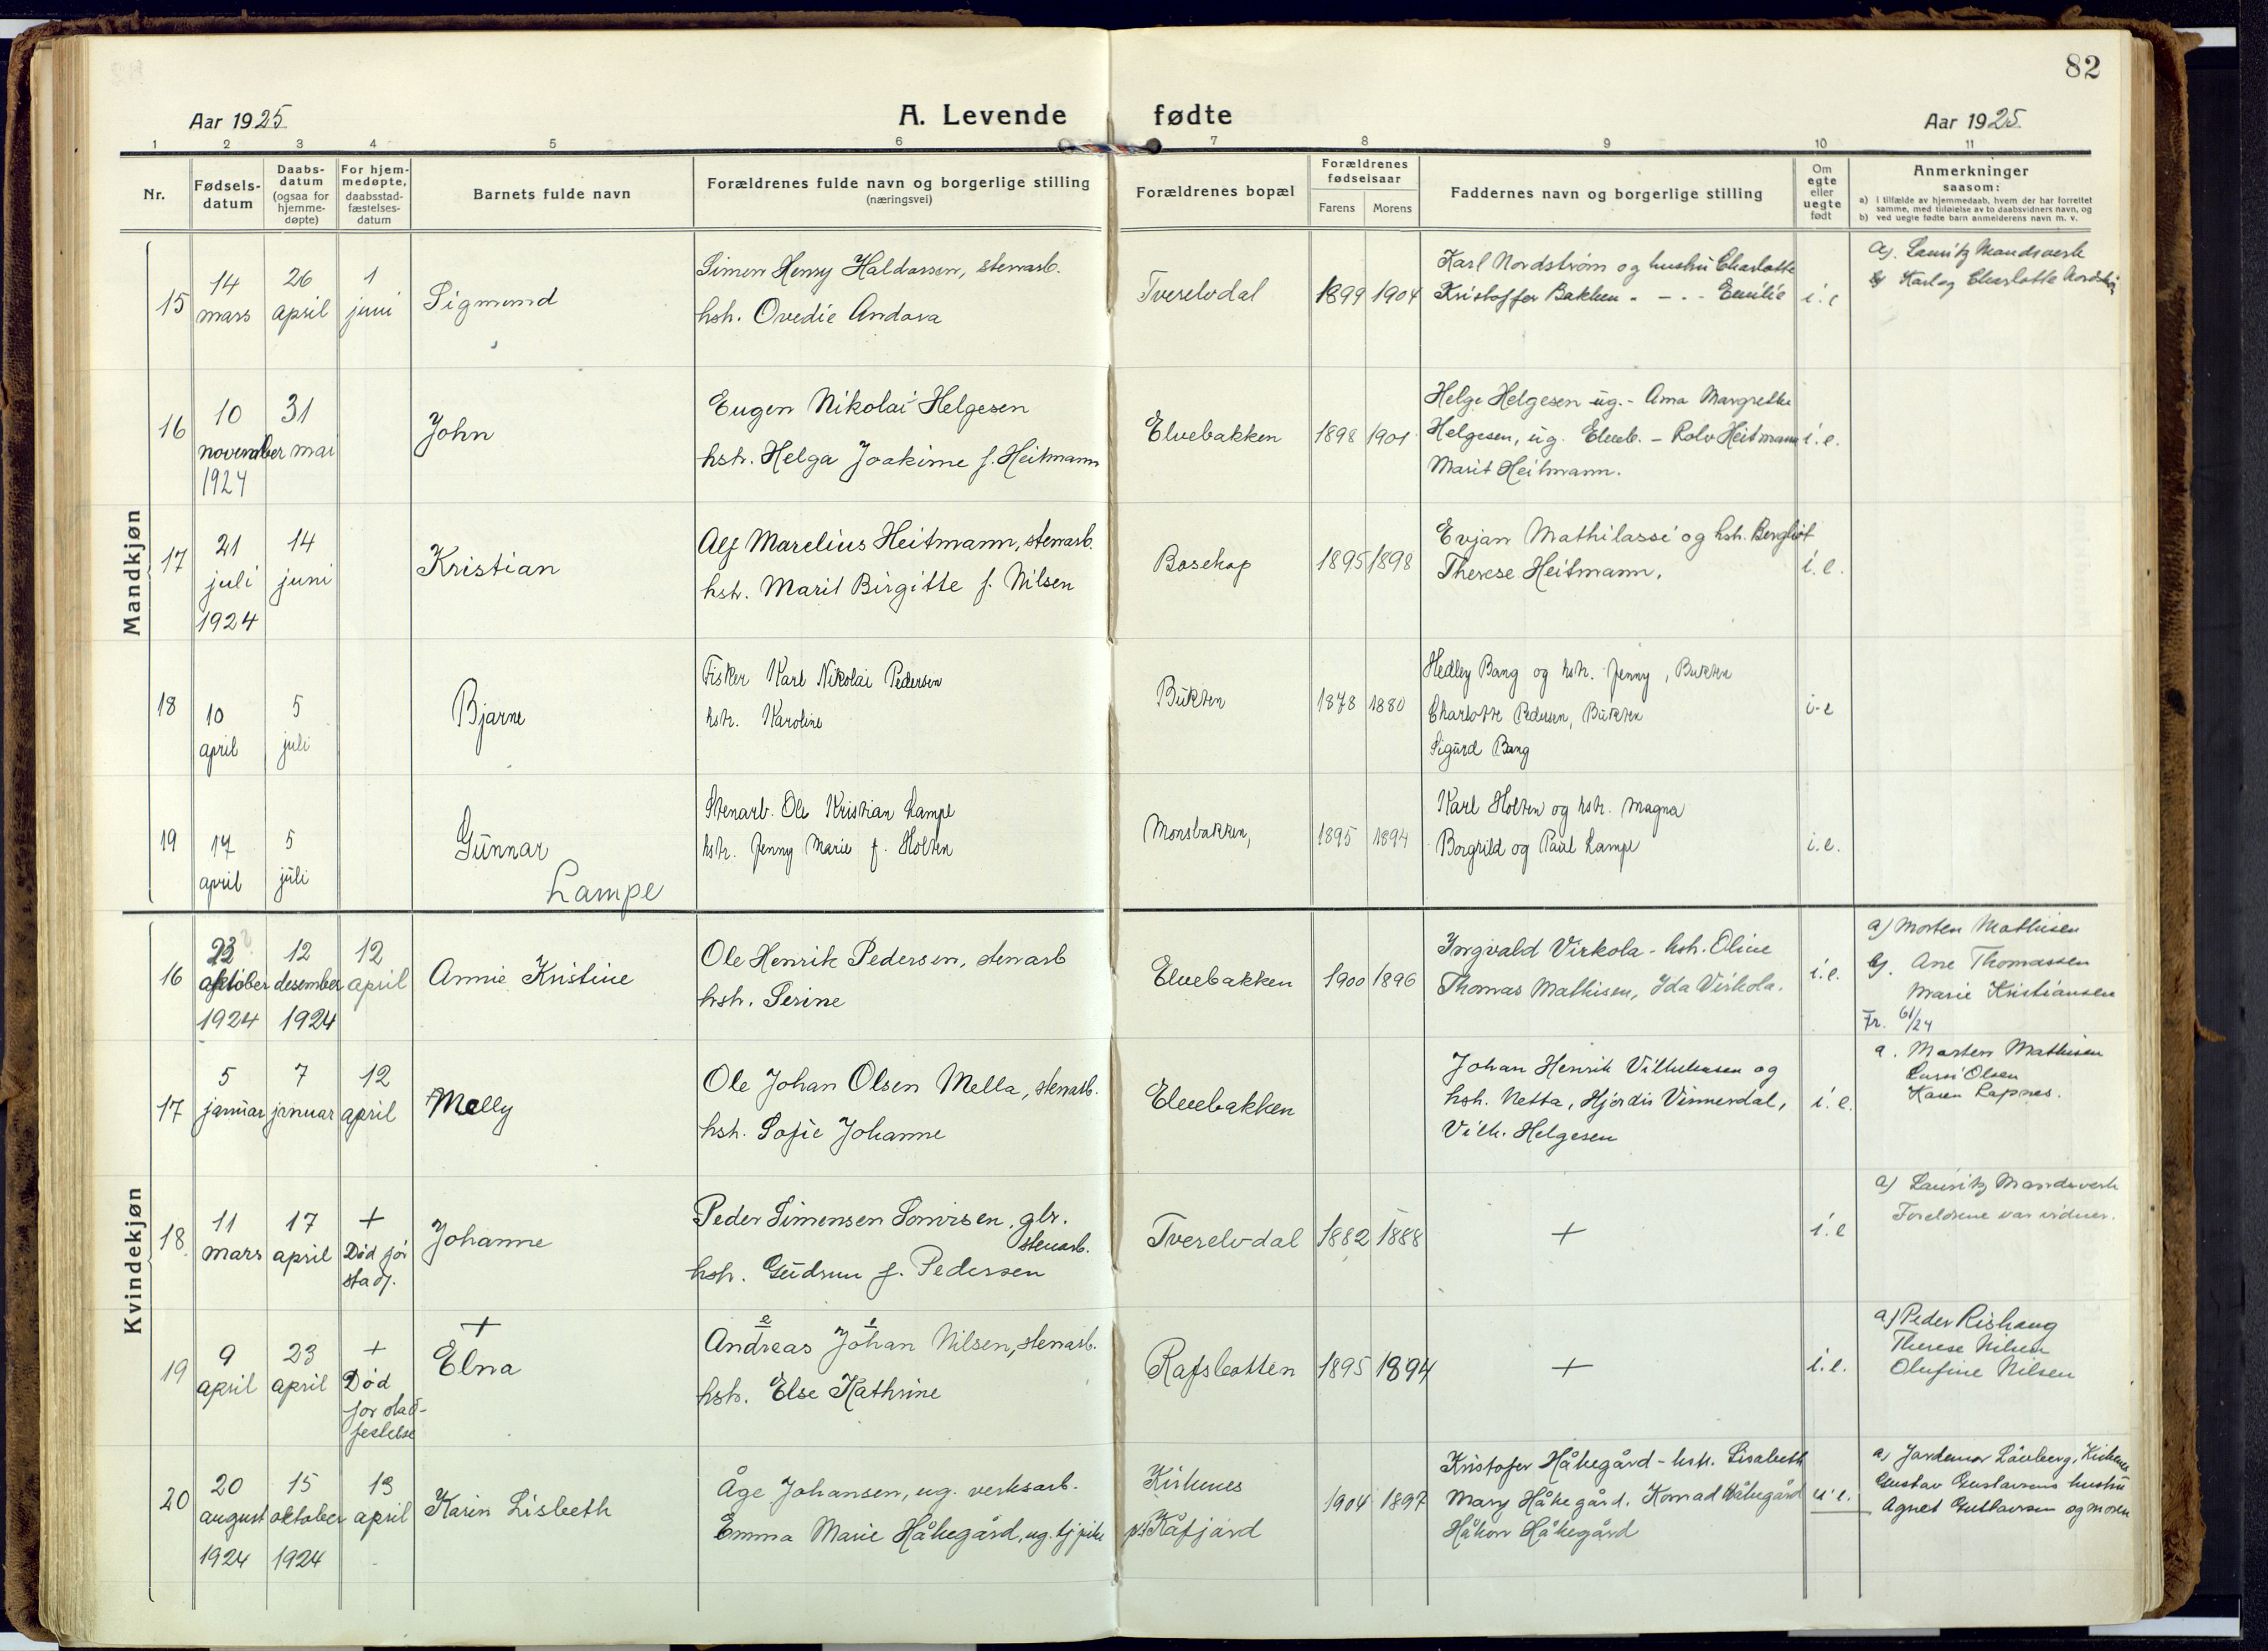 82
Aar 1925
A. Levende fødte
Aar 1925
1 2 3 4 5 6 7 8 9 10 11
Nr.
Fødsels-
datum
Daabs-
datum
(ogsaa for
hjemme-
døpte)
For hjem-
medøpte,
daabsstad-
fæstelses-
datum
Barnets fulde navn
Forældrenes fulde navn og borgerlige stilling
(næringsvei)
Forældrenes bopæl
Forældrenes
fødselsaar
Farens Morens
Faddernes navn og borgerlige stilling
Om
egte
eller
uegte
født
Anmerkninger
saasom:
a) i tilfælde av hjemmedaab, hvem der har forrettet
samme, med tilføielse av to daabsvidners navn, og
b) ved uegte fødte barn anmelderens navn m. v.
Mandkjøn
15
14
mars
26
april
1
juni
Sigmund
Simen Henry Haldorsen, stenarb.
hstr. Ovedie Andora
Tverelvdal
1899 1904
Karl Nordstrøm og hustru Charlotte
Kristoffer Bakken " - " - Emilie
i. e
a). Lauritz Mandsverk
b) Karl og Charlotte Nordstrøm
16
10
november
1924
31
mai
John
Eugen Nikolai Helgesen
hstr. Helga Joakime f. Heitmann
Elvebakken
1898 1901
Helge Helgesen ug. - Anna Margrethe
Helgesen, ug. Elveb. - Rolv Heitmann
Marit Heitmann.
i. e.
17
21
juli
1924
14
juni
Kristian
Alf Marelius Heitmann, stenarb.
hstr. Marit Birgitte f. Nilsen
Bosekop
1895 1898
Evjan Mathilassi og hstr. Bergliot
Therese Heitmann.
i. e.
18
10
april
5
juli
Bjarne
Fisker Karl Nikolai Pedersen
hstr. Karoline
Bukten
1878 1880
Hedley Bang og hstr. Jenny, Bukten
Charlotte Pedersen, Bukten
Sigurd Bang
i-e
19
17
april
5
juli
Gunnar
Lampe
Stenarb. Ole Kristian Lampe
hstr. Jenny Marie f. Holten
Monsbakken,
1895 1894
Karl Holten og hstr. Magna
Borghild og Paul Lampe
i. e.
Kvindekjøn
16
oktober
1924
12
desember
1924
12
april
Annie Kristine
Ole Henrik Pedersen, stenarb
hstr. Serine
Elvebakken
1900 1896
Yngvald Virkola - hstr. Oline
Thomas Mathisen, Ida Virkola.
i. e.
a) Morten Mathisen
b). Ane Thomassen
Marie Kristiansen
Fr. 61/24
17
5
januar
7
januar
12
april
Melly
Ole Johan Olsen Mella, stenarb.
hstr. Sofie Johanne
Elvebakken
Johan Henrik Vilhelmsen og
hstr. Netta, Hjørdis Vinnerdal,
Vilh. Helgesen
i. e.
a. Morten Mathisen
Lussi Olsen
Karen Lapnes.
18
11
mars
17
april
+
Død før
stadf.
Johanne
Peder Simensen Sonvisen, glr.
stenarb.
hstr. Gudrun f. Pedersen
Tverelvdal
1882 1888
+
i. e
a) Lauritz Mandsverk
Foreldrene var vidner.
19
9
april
23
april
+
Død
for stad-
festelse
+
Elna
Andreas Johan Nilsen, stenarb.
hstr. Else Kathrine
Rafsbotten
1895 1894
+
i. e.
a) Peder Rishaug
Therese Nilsen
Olufine Nilsen
20
20
august
1924
15
oktober
1924
13
april
Karin Lisbeth
Åge Johansen, ug. verksarb.
Emma Marie Håkegård, ug. tj.pike
Kirkenes
pt Kåfjord
1904 1897
Kristofer Håkegård - hstr. Lisabeth
Mary Håkegård. Konrad Håkegård
Håkon Håkegård
u. e.
a) Løvberg, Kirkenes
Gustav Gustavsens hustru
Agnet Gustavsen og moren